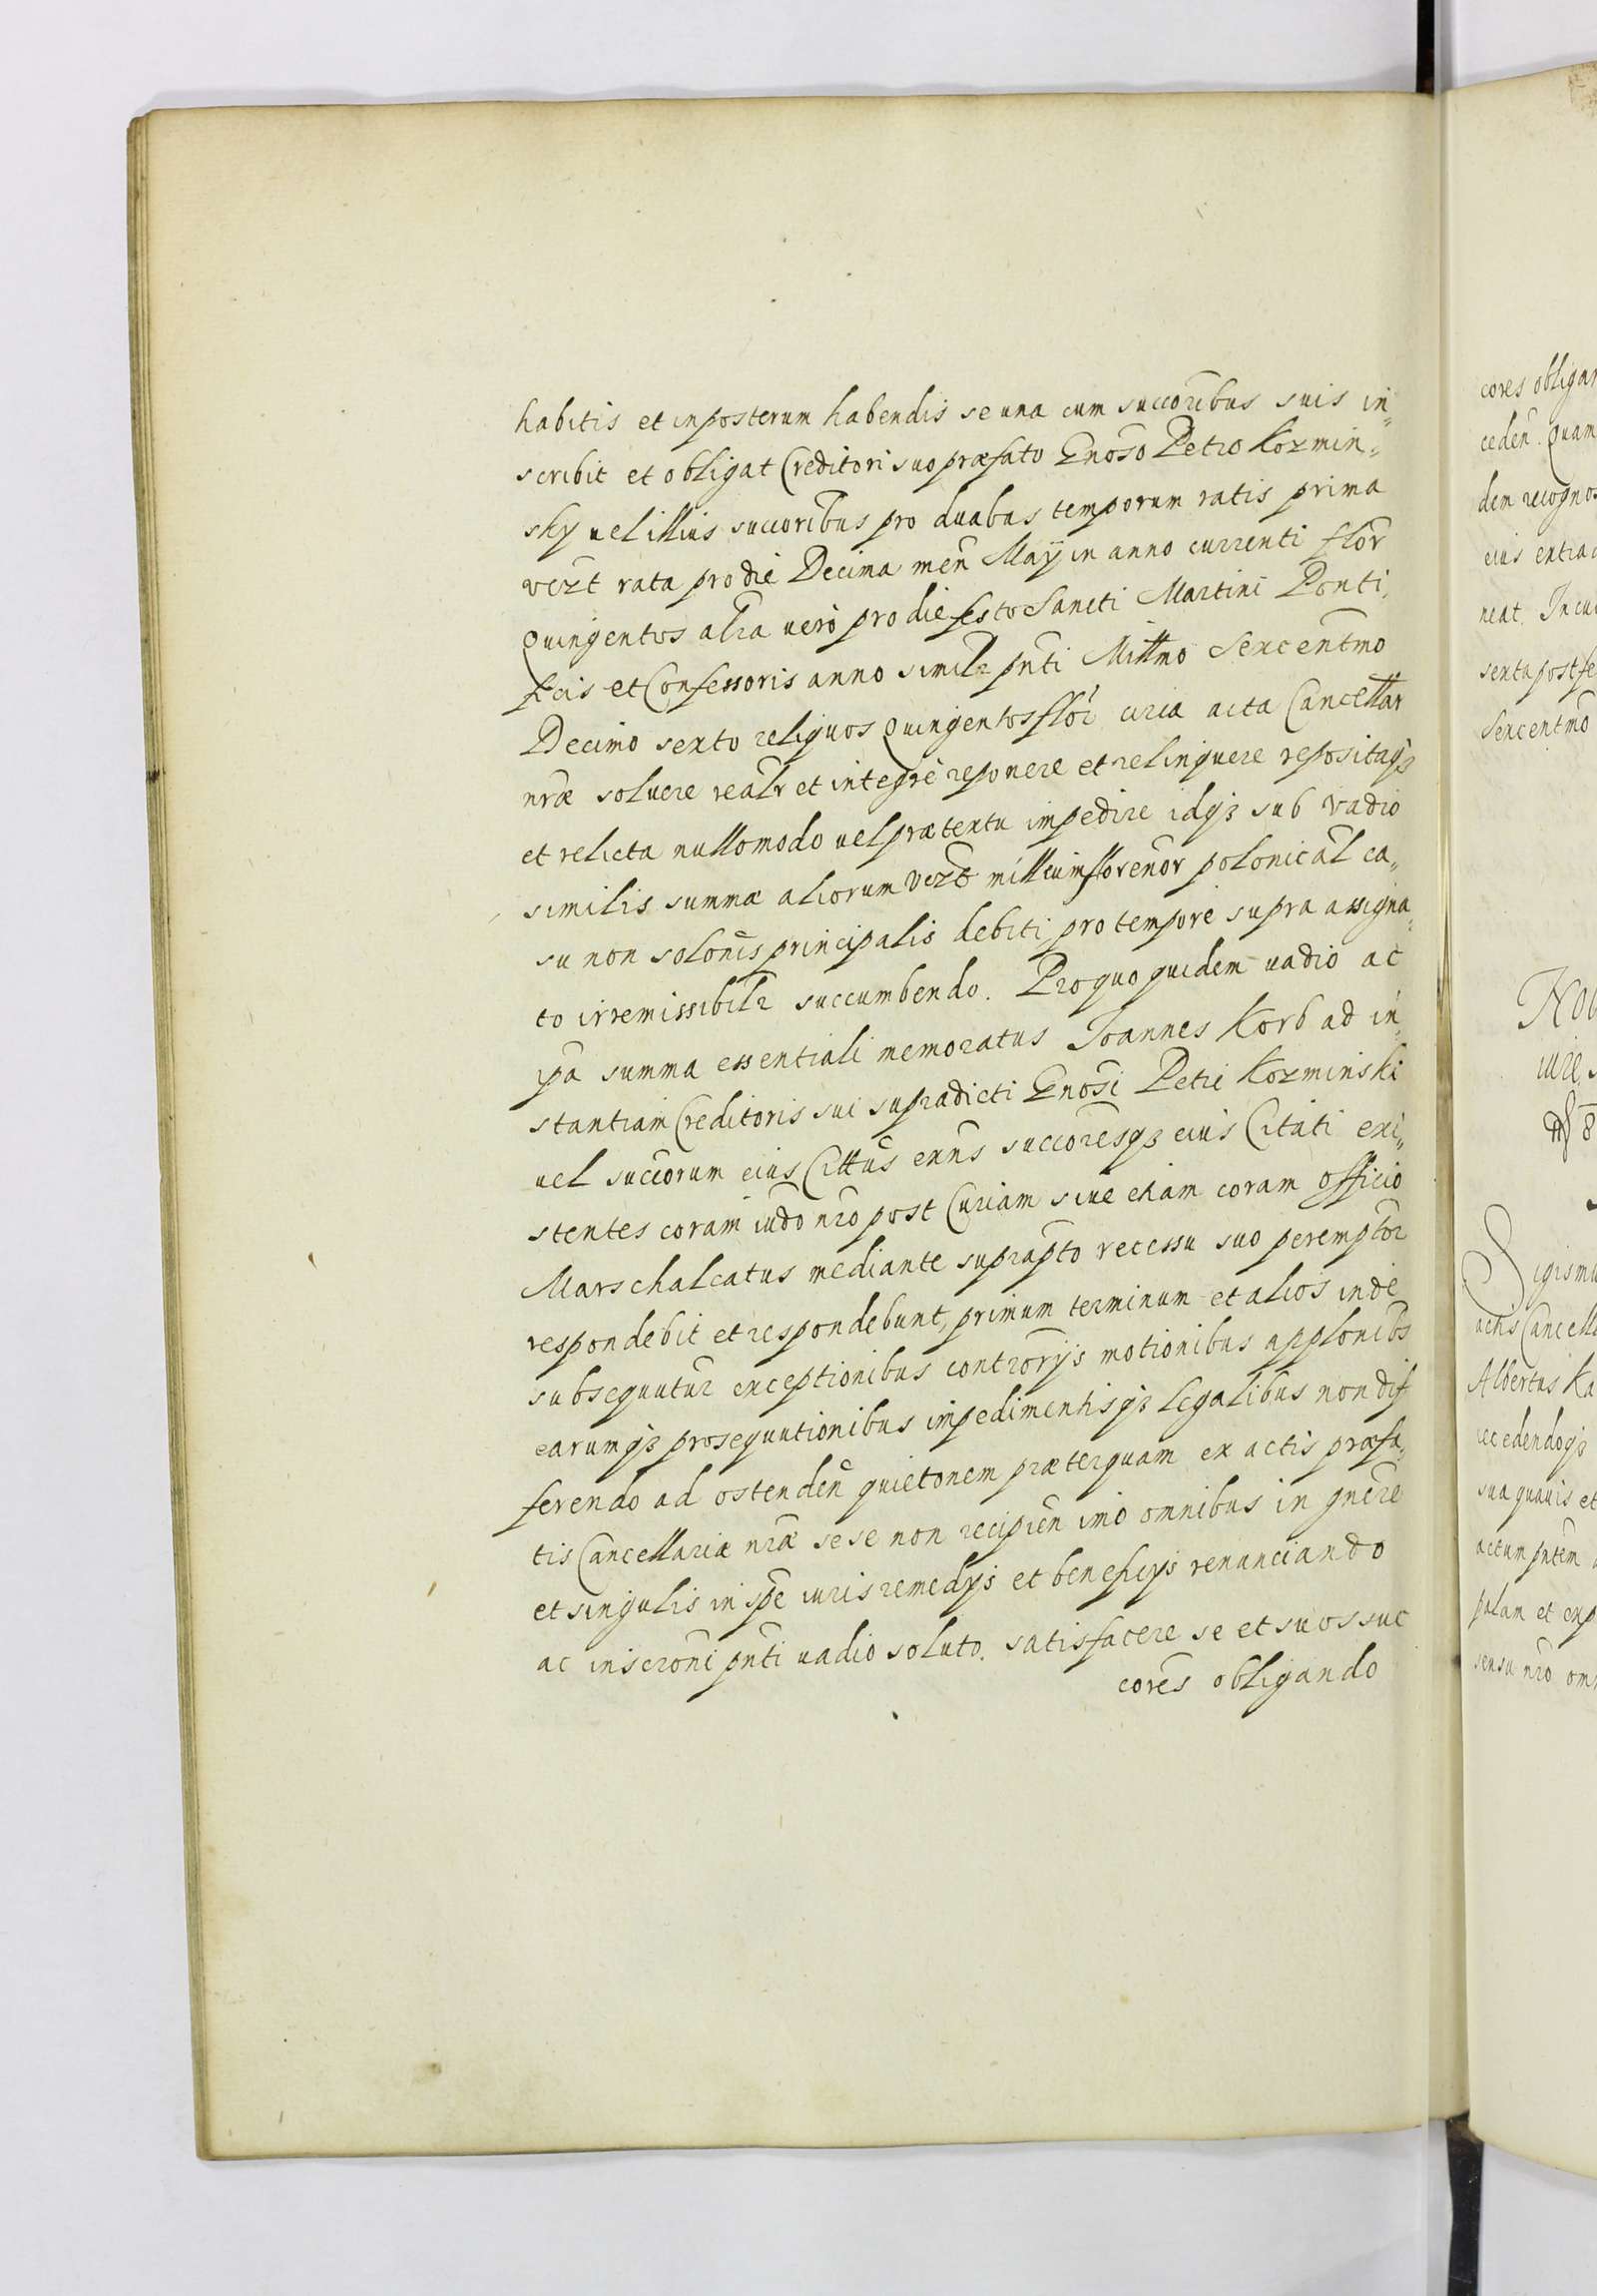 habitis et in posterum habendis se una cum succoribus suis in„
scribit et obligat Creditori suo præfato Gnoso Petro Kozmin„
sky vel illius succoribus pro duabus temporum ratis prima
vczt rata pro die Decima men Maÿ in anno currenti flor
Quingentos alia vero pro die festo Sancti Martini Ponti„
ficis et Confessoris anno simili pnti Millmo Sexcentmo
Decimo sexto reliquos Quingentos flor circa acta Cancellar
nræ soluere realr et integre reponere et relinquere repositaqz
et relicta nullo modo vel prætextu impedire idqz sub vadio
similis summæ aliorum vczt mille florenor polonical ca„
su non solonis principalis debiti pro tempore supra assigna„
to irremissibilr succumbendo. Pro quo quidem vadio ac
ipa summa essentiali memoratus Joannes Korb ad in„
stantiam Creditoris sui supradicti Gnosi Petri Kozminski
vel succorum eius Cittus exns succoresqz eius Citati exi„
stentes coram iudo nro post Curiam siue etiam coram officio
Marschalcatus mediante suprapto recessu suo peremptor
respondebit et respondebunt, primum terminum et alios inde
subsequutur exceptionibus controrijs motionibus applonibs
earumqz prosequutionibus impedimentisqz legalibus non dif
ferendo ad ostenden quietonem præterquam ex actis præfa„
tis Cancellariæ nræ sese non recipien imo omnibus in gnere
et singulis in spe iuris remedijs et beneficijs renunciando
ac inscroni pnti vadio soluto. satisfacere se et suos suc
cores obligando
cores obligan
ceden. Quam
dem recognos
eius extra
neat. In cu
sexta post fe
Sexcentmo
iure
Sigismu
actis Cancella
Albertus Ka
recedendoqz
sua quauis et
actum pntem
palam et exp
sensu nro om